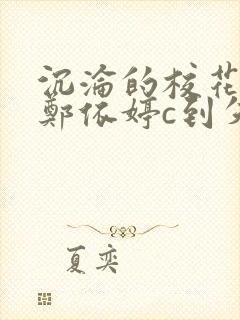 沉淪的校花
鄭依婷c到欠
夏奕